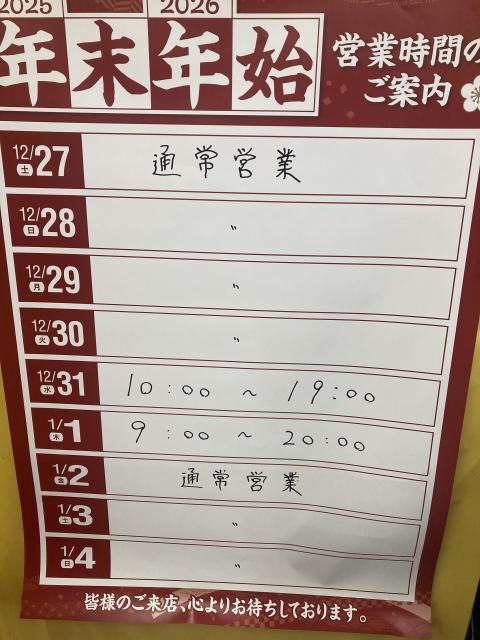 2025 2026
年末年始
営業時間の
ご案内
12/27 土 通常営業
12/28 日 〃
12/29 月 〃
12/30 火 〃
12/31 水 10:00 ~ 19:00
1/1 木 9:00 ~ 20:00
1/2 金 通常営業
1/3 土 〃
1/4 日 〃
皆様のご来店、心よりお待ちしております。